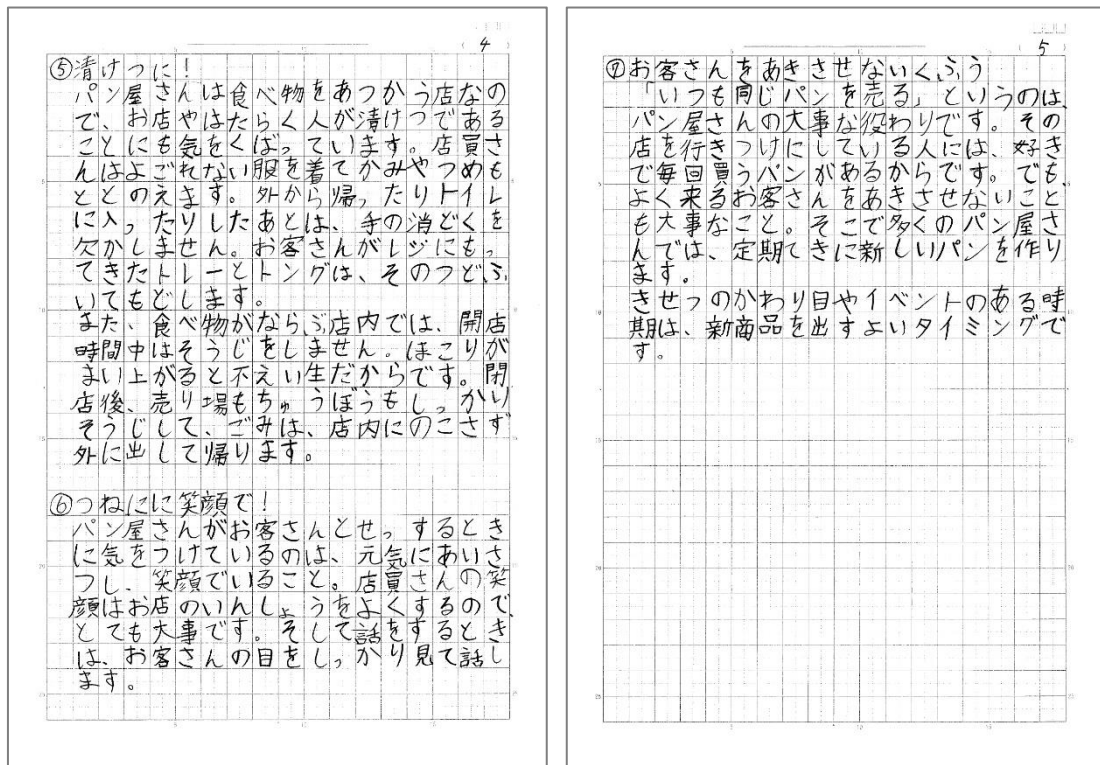 (4)
⑤清けつに!
パン屋さんは食べ物をあつかう店なの
で、お店やはたらく人が清けつである
ことにも気をくばっています。店買さ
んはよごれない服を着てかみやつめも
ととのえます。外から帰ったりトイレ
に入ったりしたあとは、手の消どくを
欠かしません。お客さんがレジにもっ
てきたトレーとトングは、そのつどふ
いてもどします。
また、食べ物がならぶ店内では、開店
時間中はそうじをしません。ほこりが
まい上がると不えい生だからです。閉
店後、売り場もちゅうぼうもしっかり
そうじして、ごみは、店内にのこさず
外に出して帰ります。
⑥つねにに笑顔で!
パン屋さんがお客さんとせっするとき
に気をつけているのは、元気にあいさ
つし、笑顔でいること。店員さんの笑
顔はお店のいんしょうをよくするので、
とても大事です。そして話をするとき
は、お客さんの目をしっかり見て話し
ます。
(5)
⑦お客さんをあきさせないくふう
「いつも同じパンを売る」というのは、
パン屋さんの大事な役わりです。その
店を行きつけにしている人には、好き
で毎回買うパンがあるからです。でも、
よく来るお客さんをあきさせないこと
も大事なこと。そこで多くのパン屋さ
んでは、定期てきに新しいパンを作り
ます。
きせつのかわり目やイベントのある時
期は、新商品を出すよいタイミングで
す。